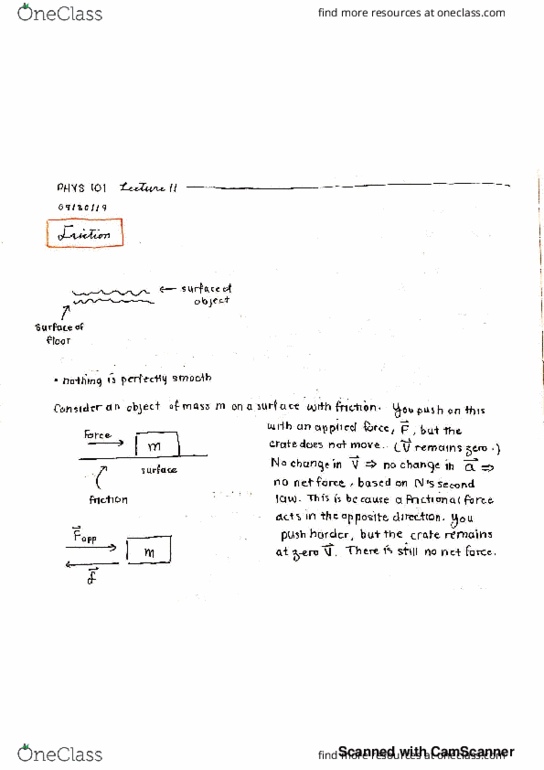 OneClass
find more resources at oneclass.com
PHYS 101 Lecture 11
09/20/19
Friction
← surface of
object
surface of
floor
• nothing is perfectly smooth
Consider an object of mass m on a surface with friction. You push on this
with an applied force, F⃗, but the
crate does not move. (V⃗ remains zero.)
No change in V⃗ ⇒ no change in a⃗ ⇒
no net force, based on N's second
law. This is because a frictional force
acts in the opposite direction. You
push harder, but the crate remains
at zero V⃗. There is still no net force.
Force
m
surface
friction
F⃗app
m
f⃗
OneClass
find more resources at oneclass.com
Scanned with CamScanner